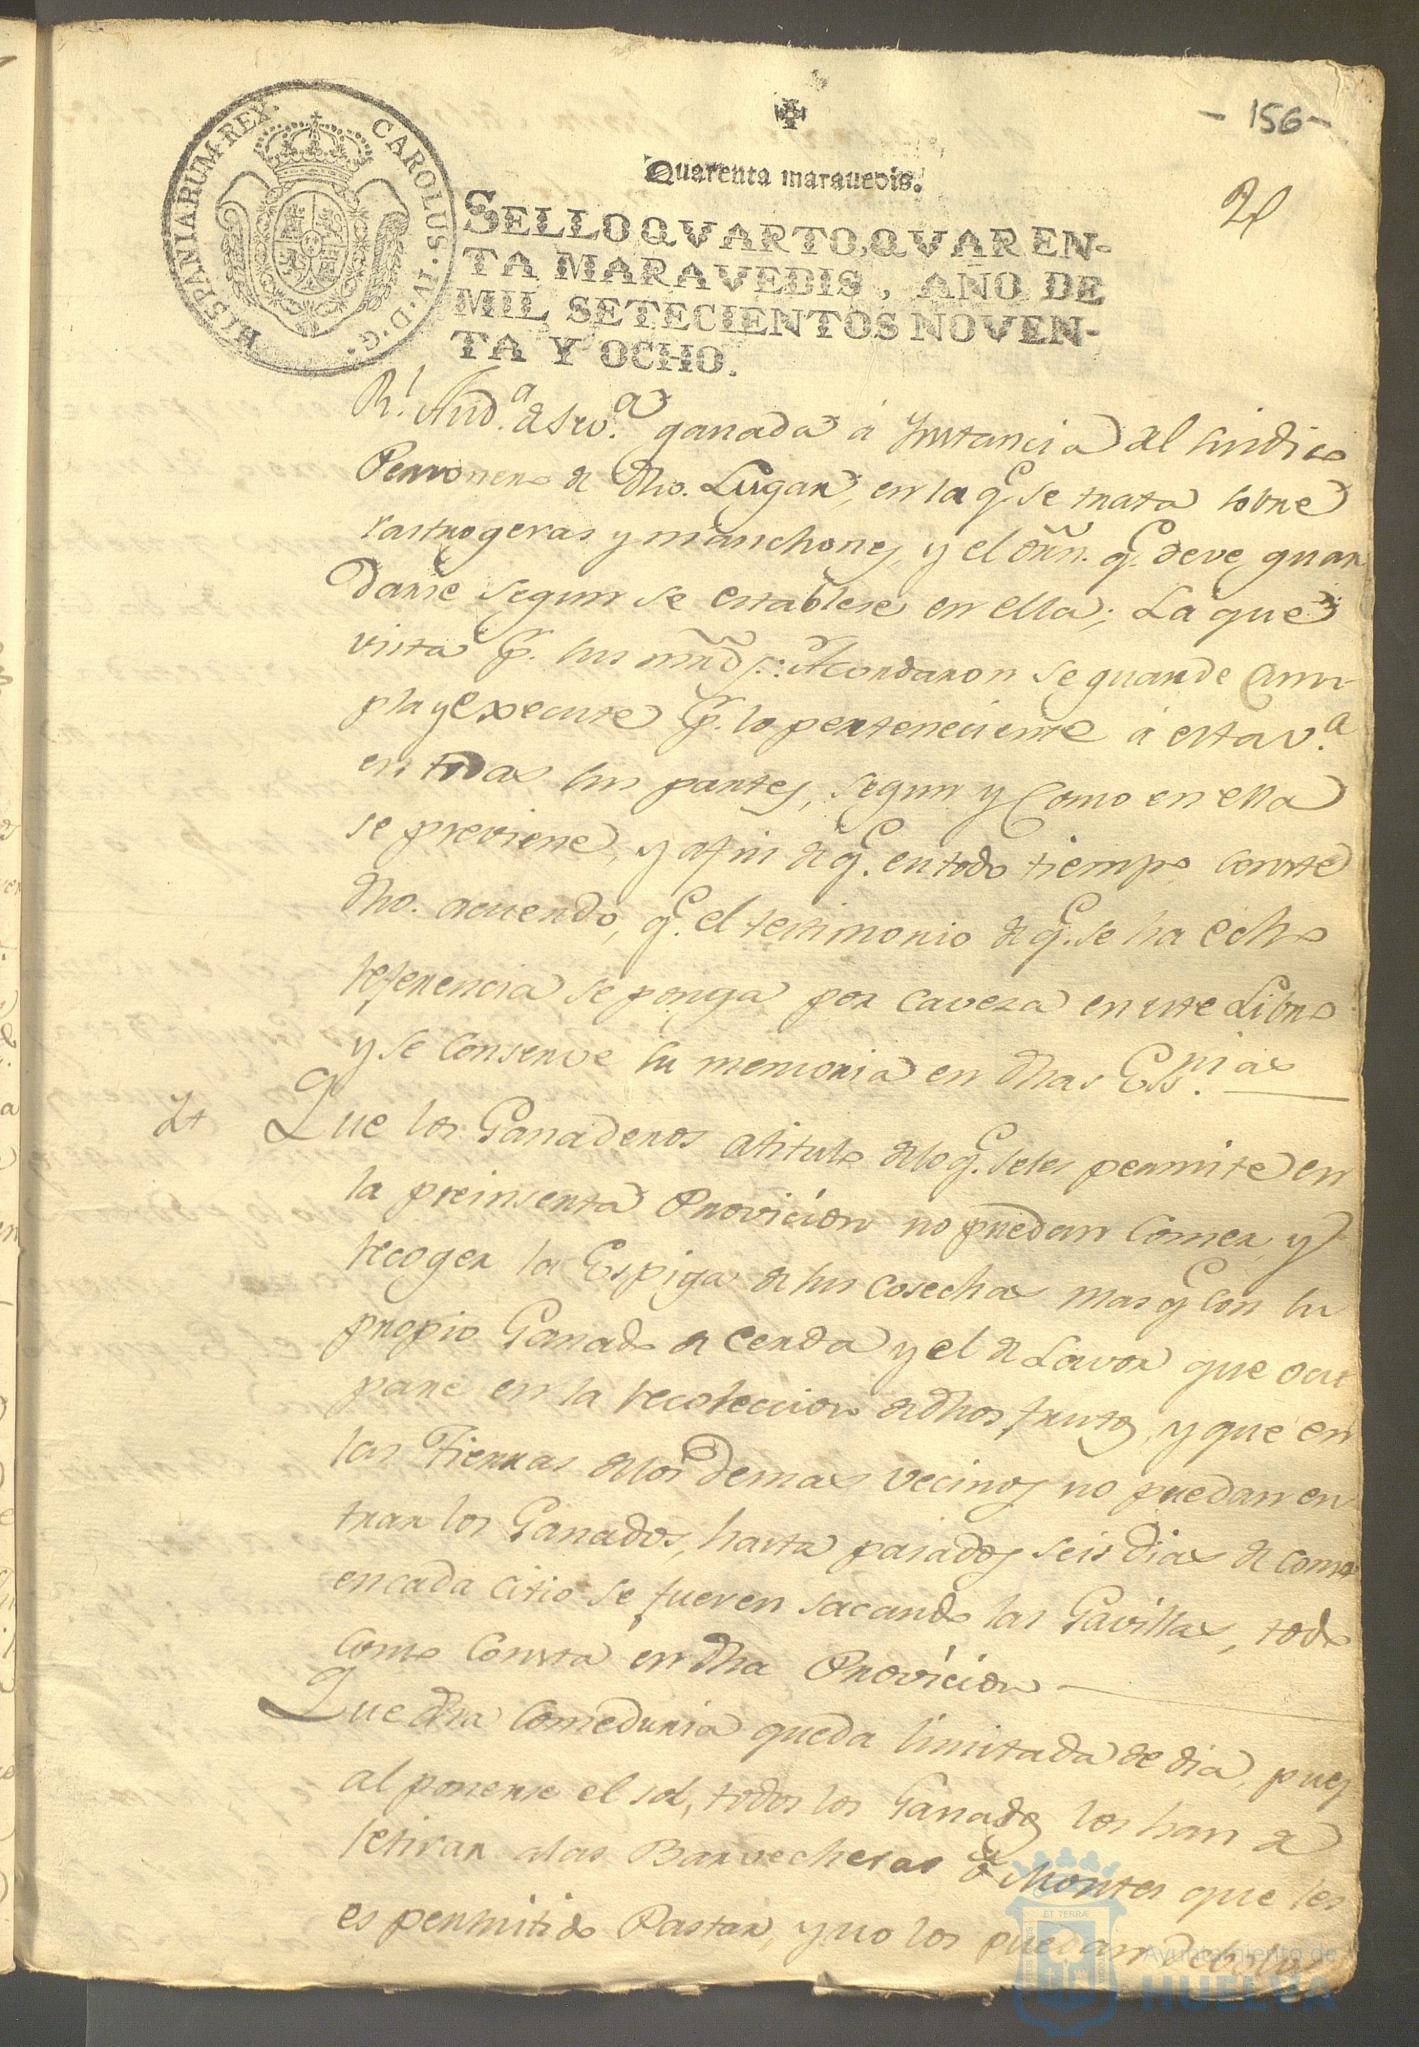 - 156 -
HISPANIARUM·REX· CAROLUS·IV·D·G·
Quarenta marauedis.
SELLO QVARTO, QVAREN-
TA MARAVEDIS, AÑO DE
MIL SETECIENTOS NOVEN-
TA Y OCHO.
Rl. Auda. de Seva. ganada á Ynstancia del sindico
Personero de dho. Lugar, en la qe. se trata sobre
rastrogeras y manchones, y el orñ. qe. deve guar
darse segun se establese en ella; La que
vista pr. sus mrds.: Acordaron se guarde Cum-
pla y execute pr. lo perteneciente á esta va.
en todas sus partes, segun y Como en ella
se previene, y afin de qe. en todo tiempo conste
dho. acuerdo, qe. el testimonio de qe. se ha echo
referencia se ponga por caveza en este Libro
y se conserve su memoria en dhas Essnias
Que los Ganaderos atitulo delo qe. seles permite en
la preinserta Provicion no puedan Comer, y
recoger la Espiga de sus cosechas mas qe Con su
propio Ganado de cerda y el de Lavor que ocu
pare en la recoleccion de dhos frutos, y que en
las Tierras delos demas vecinos no puedan en
trar los Ganados, hasta pasados seis dias de como
en cada citio se fueren sacando las Gavillas, todo
como Consta en dha Provicion
Que dha Comeduria queda limitada de dia, pues
al ponerse el sol, todos los Ganados los han de
retirar alas Barvecheras ó Montes que les
es permitido Pastar, y no los puedan debolv
ET TERRÆ
Ayuntamiento de
HUELVA